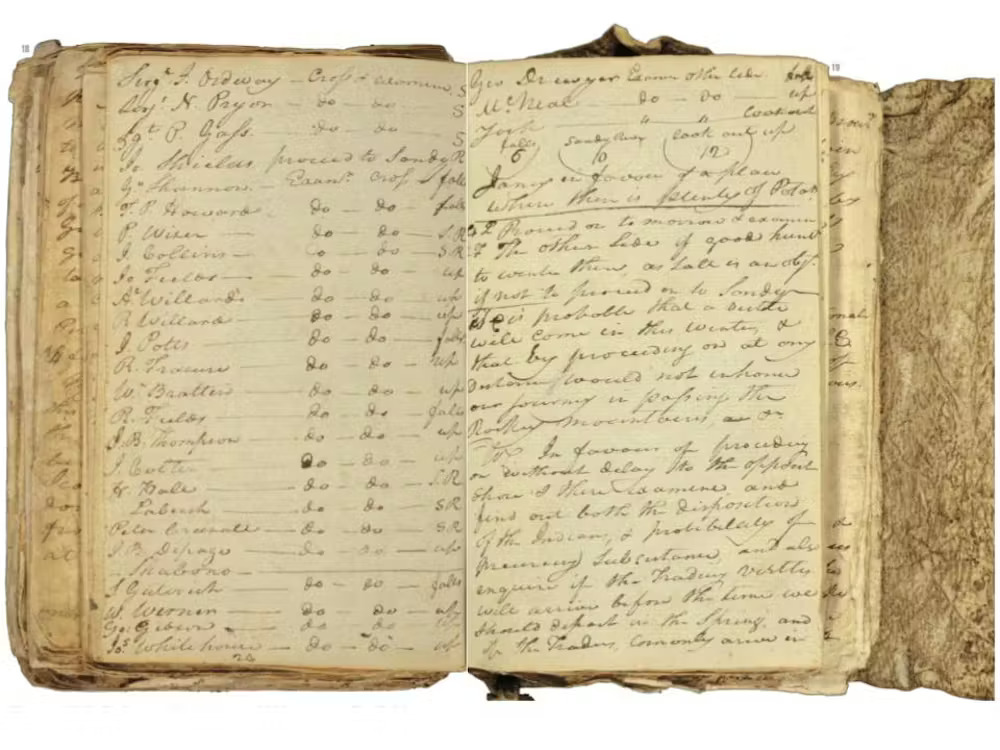 18
Sergt. J. Ordway — Cross & examine S
Serjt. N. Pryor — do — do — S
Sgt. P. Gass — do — do — S
Jo. Shields proceed to Sandy R
Go. Shannon — Examn. Cross — falls
T. P. Howard — do — do — falls
P. Wiser — do — do — S. R
J. Collins — do — do — S R
Jo Fields — do — do — up
Al. Willard — do — do — up
R Willard — do — do — up
J. Potts — do — do — falls
R. Frasure — do — do — up
Wm. Bratten — do — do — up
R. Fields — do — do — falls
J. B. Thompson — do — do — up
J. Colter — do — do — up
H. Hall — do — do — S. R.
Labeech — do — do S R
Peter Crusatte — do — do S R
J. B. Depage — do — do — up
Shabono —
S. Guterich — do — do — falls
W. Werner — do — do — up
Go: Gibson — do — do up
Jos. Whitehouse — do — do — up
19
Geo Drewyer Examn other side falls
McNeal — do — do — up
York " " lookout
falls Sandy River look out up
6 10 12
Janey in favour of a place
where there is plenty of Potas.
Proceed on to morrow & examine
The other side if good hunt
to winter there, as Salt is an obj.
if not to proceed on to Sandy
is probable that a
will come in this winter, &
that by proceeding on at any
distance would not inhance
our journey in passing the
Rocky mountains, &c
In favour of proceding
on without delay to the oppost
Shore & there examine, and
find out both the disposition
of the Indians, & probibilaty of
precureing Subsistance, and also
enquire if the Tradeing vestles
will arrive before the time we
should depart in the Spring, and
if the Traders, comonly arive in